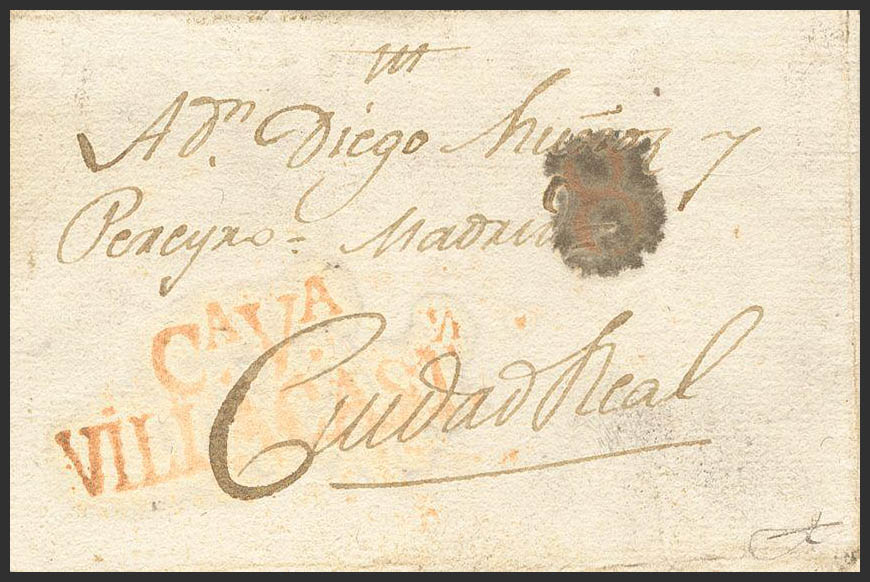 m
A dn. Diego Muñoz y
Pereyro = Madrid
CA. VA
VILLACASN
Ciudad Real